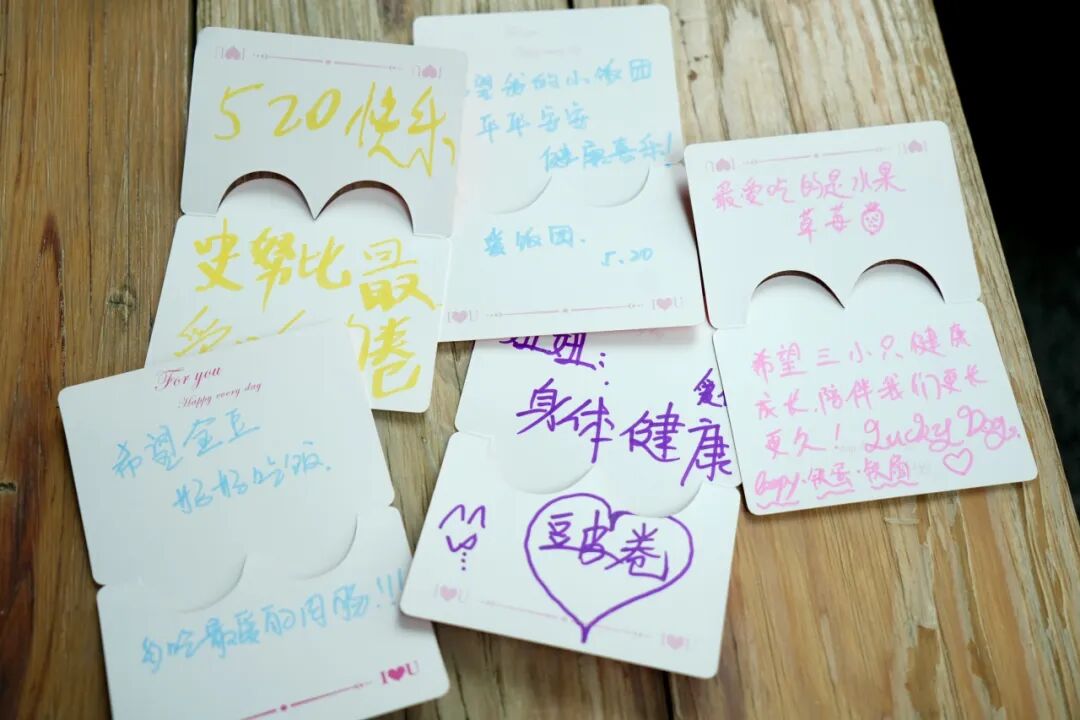 520快乐
史努比最
卷
望我的小饭团
平平安安
健康喜乐!
爱饭团.
5.20
I U
最爱吃的是水果
草莓
希望三小只健康
成长,陪伴我们更长
更久! Lucky Dog.
For you
Happy every day
希望金豆
好好吃饭.
多吃最爱的肉肠!!!
I U
妞妞:
身体健康
豆皮卷
I U